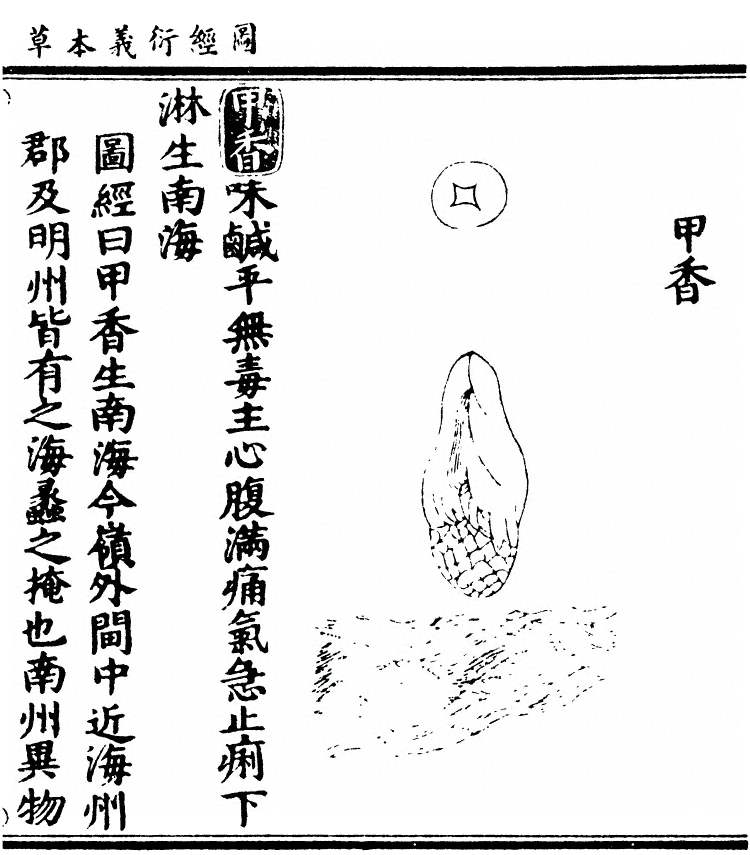 圖經衍義本草
甲香
甲香味鹹平無毒主心腹滿痛氣急止痢下
淋生南海
圖經曰甲香生南海今嶺外閩中近海州
郡及明州皆有之海蠡之掩也南州異物